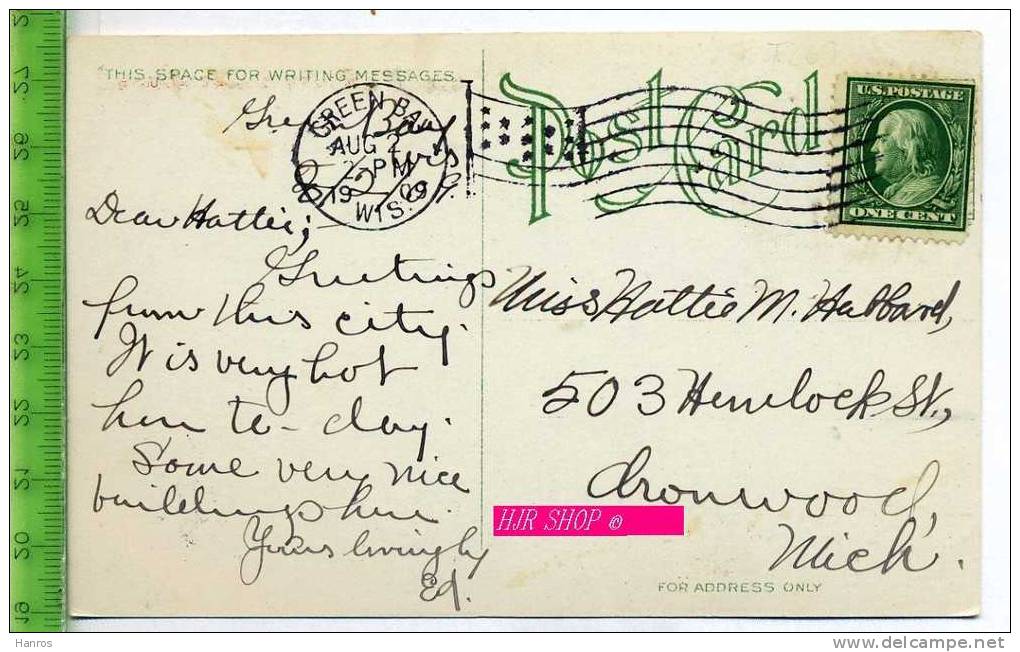 THIS SPACE FOR WRITING MESSAGES
Post Card
U.S. POSTAGE
ONE CENT
GREEN BAY
AUG 2
2 PM
1909
WIS.
Green Bay
Wis
Dear Hattie;
Greetings
from this city.
It is very hot
here to-day.
Some very nice
buildings here.
Yours lovingly
Ed.
Miss Hattie M. Habbard,
503 Hemlock St.,
Ironwood,
Mich.
HJR SHOP ©
FOR ADDRESS ONLY
19 20 21 22 23 24 25 26 27
Hanros
www.delcampe.net